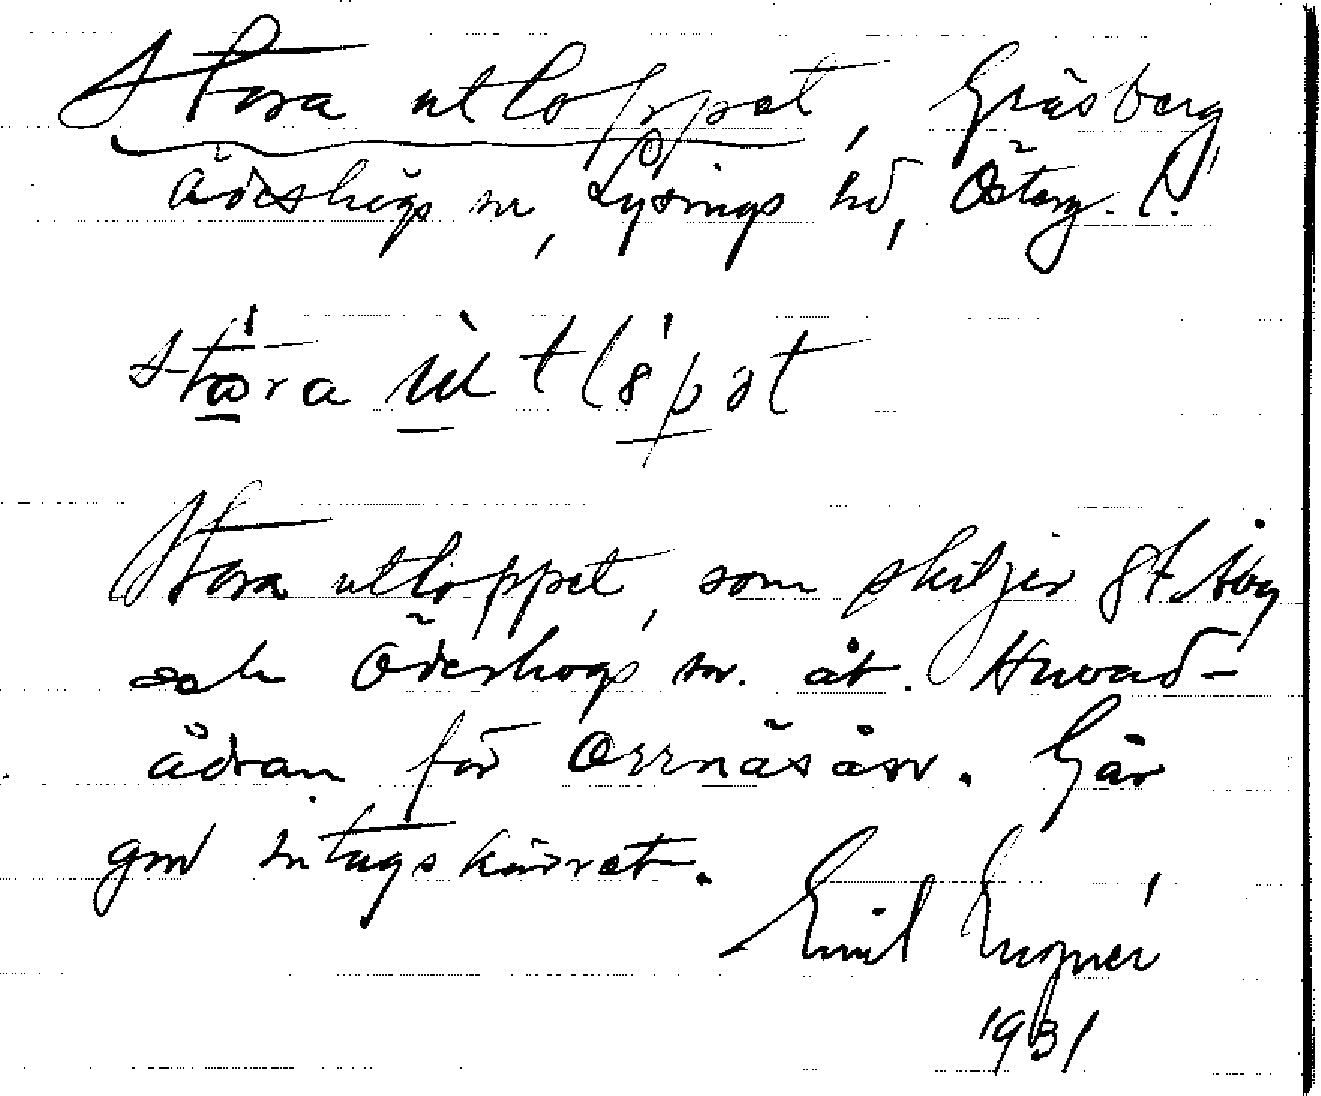 Stora utloppet, Gräsberg,
Ödeshögs sn, Lysings hd, Österg. l.
stora utlöpət
Stora utloppet, som skiljer St. Åby
och Ödeshögs sn. åt. Huvud-
ådran för Orrnäsån. Går
gm intagskärret.
Emil
1931